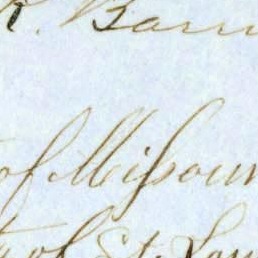 R. Barn
of Missour
of St. Lou